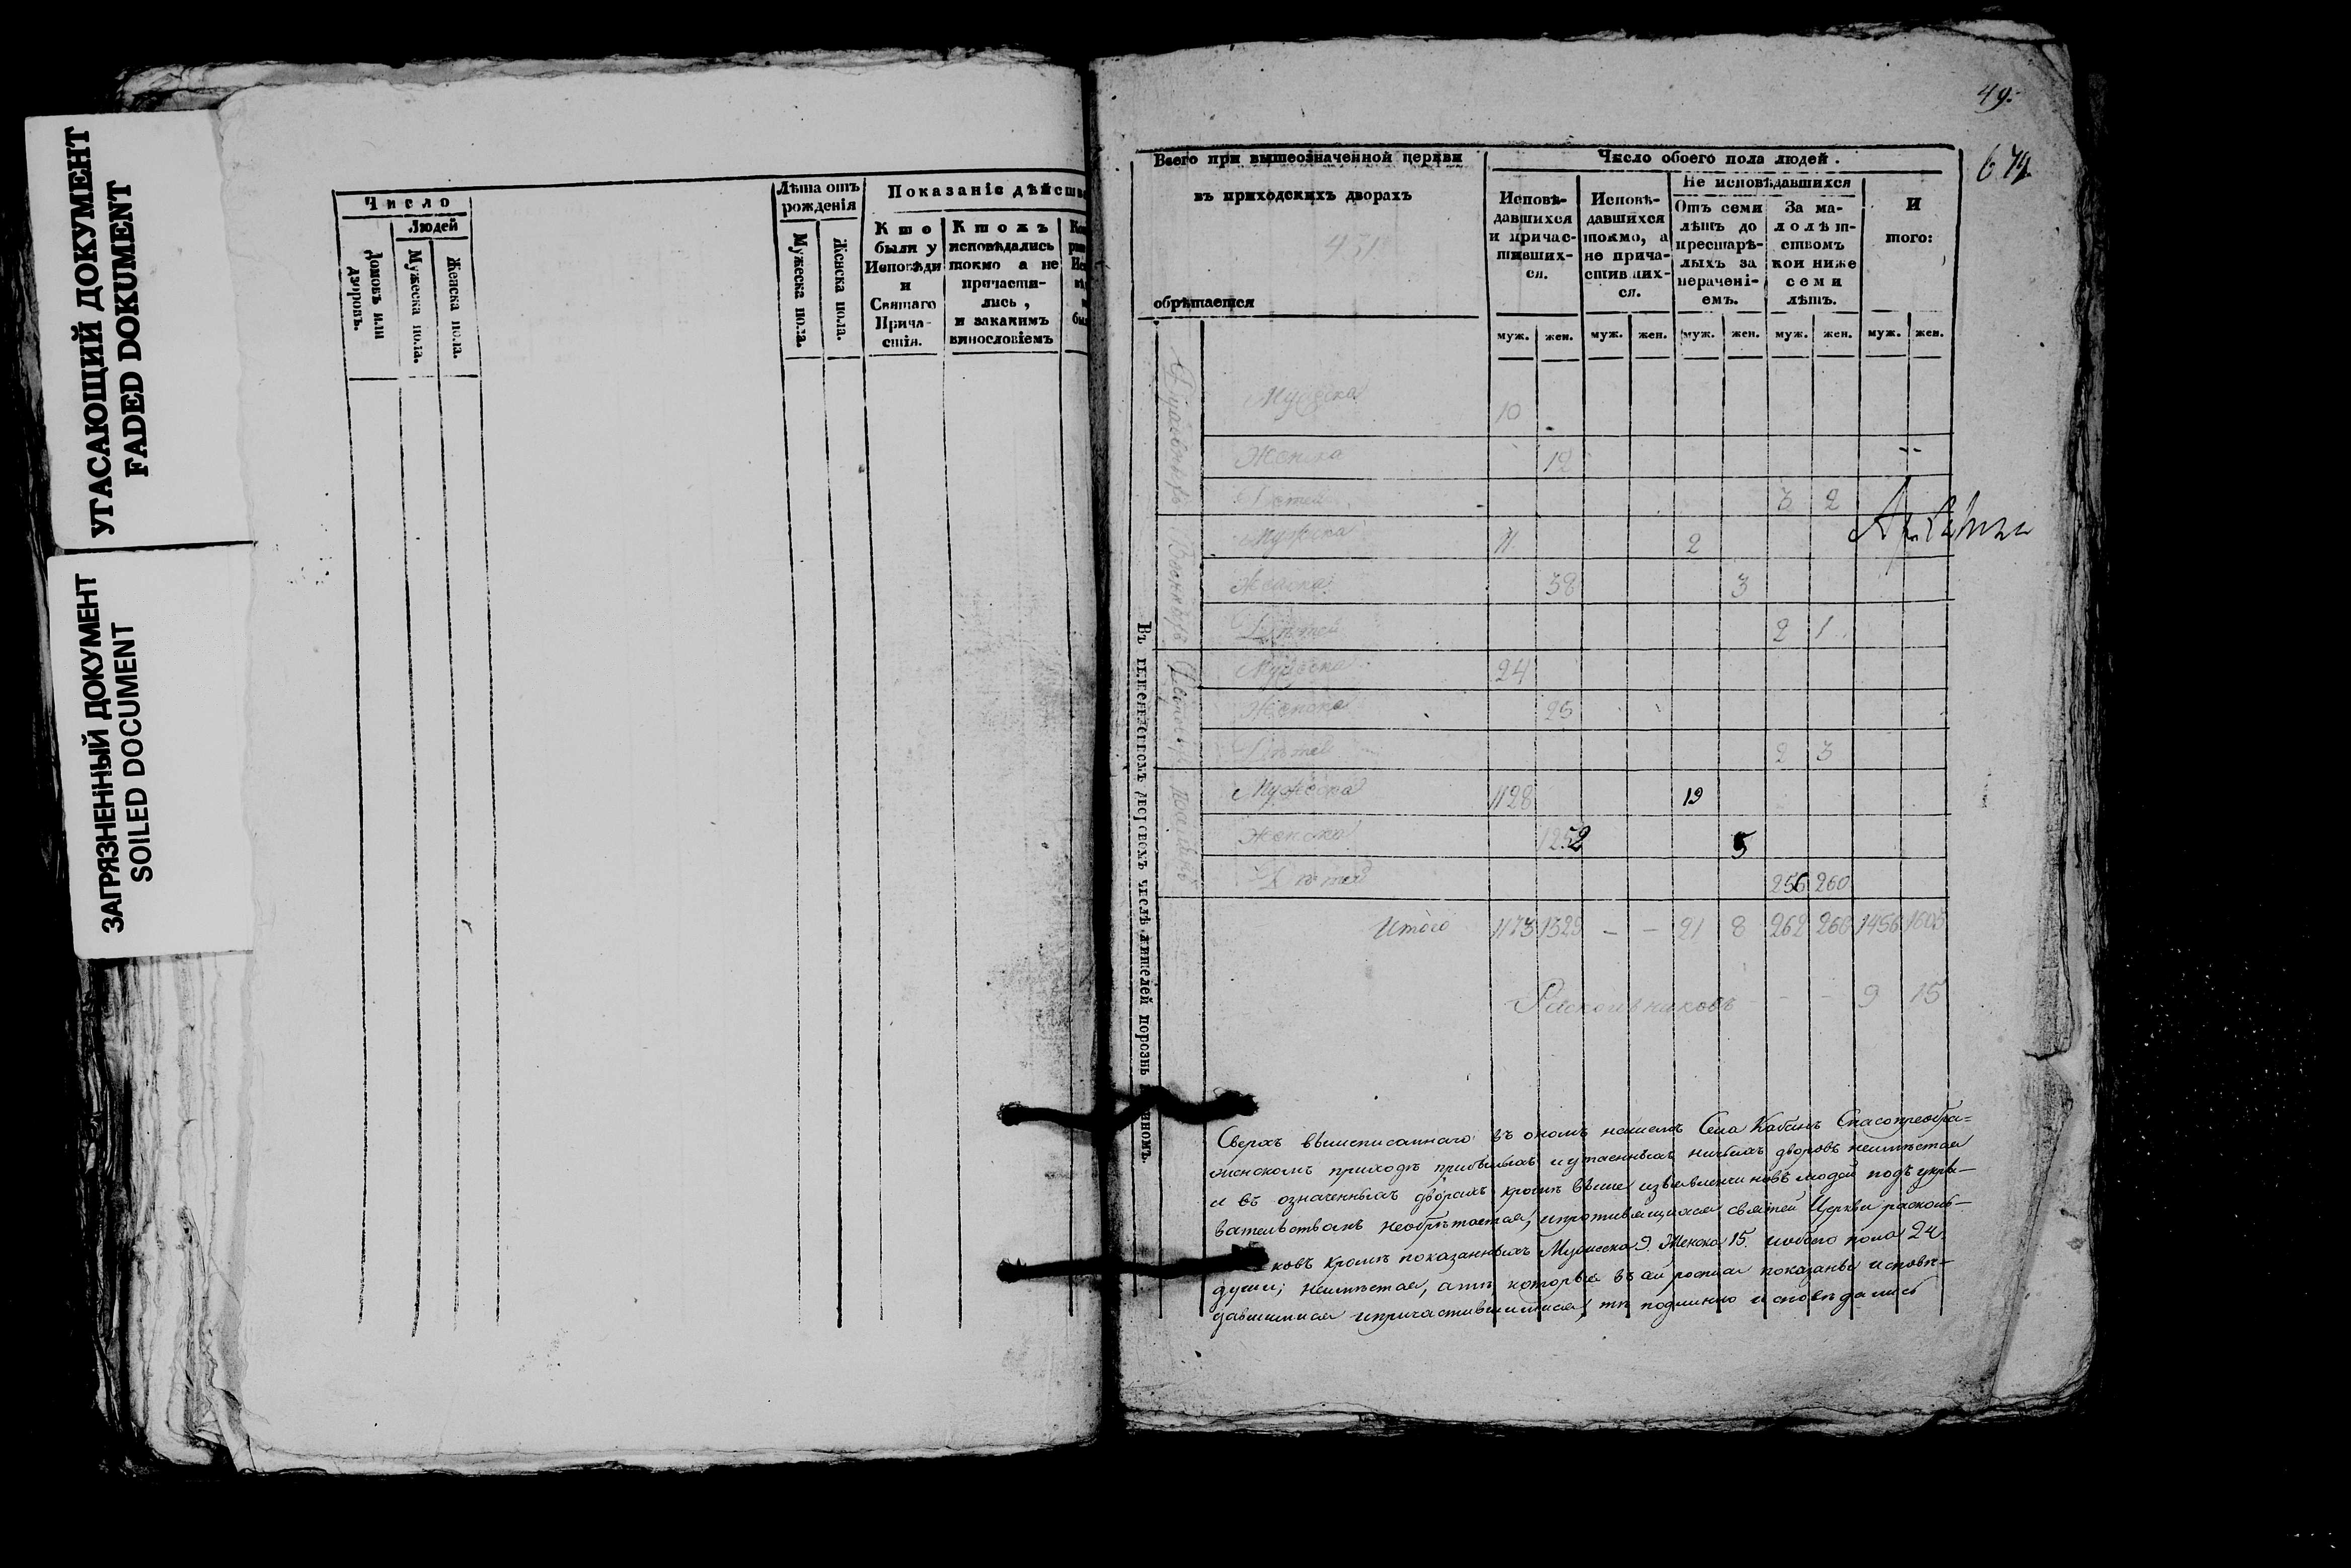 УГАСАЮЩИЙ ДОКУМЕНТ
FADED DOKUMENT
ЗАГРЯЗНЕННЫЙ ДОКУМЕНТ
SOILED DOCUMENT
Число
Людей
Домовъ или дворовъ.
Мужеска пола.
Женска пола.
Лѣта отъ рожденія
Мужеска пола.
Женска пола.
Показаніе дѣйств
Кто были у Исповѣди и Святаго Причастія.
Ктожъ исповѣдались токмо а не причастились, и закакимъ винословіемъ
49.
674
Всего при вышеозначенной церкви
въ приходскихъ дворахъ
431
обрѣтается
Число обоего пола людей.
Исповѣдавшихся и причастившихся.
Исповѣдавшихся токмо, а не причастившихся.
Не исповѣдавшихся
Отъ семи лѣтъ до престарѣлыхъ за нерачені-емъ.
За малолѣтствомъ кои ниже семи лѣтъ.
И того:
муж. жен. муж. жен. муж. жен. муж. жен. муж. жен.
Мужеска 10
Женска 12
Дѣтей 3 2
Мужеска 11 2
Женска 38 3
Дѣтей 2 1
Мужеска 24
Женска
Дѣтей 2 3
Мужеска 1128 19
Женска 1252 5
Дѣтей 256 260
Итого 1173 1329 – – 21 8 262 266 1456
Раскольниковъ – – – 9 15
Сверхъ вышеписаннаго въ ономъ нашемъ Села Кабанъ Спасопреобра=
женскомъ приходѣ прибылыхъ и утаенныхъ никакихъ дворовъ неимѣется
и въ означенныхъ дворахъ кромѣ выше людей подъ укры-
вательствомъ необрѣтается, и противящихся святей Церкви расколь-
ковъ кромѣ показанныхъ Мужеска 9. Женска 15. и обоего пола 24.
души; неимѣется, а тѣ которые въ сей росписи показаны исповѣ-
давшимися и причастившимися, тѣ подлинно исповѣдались